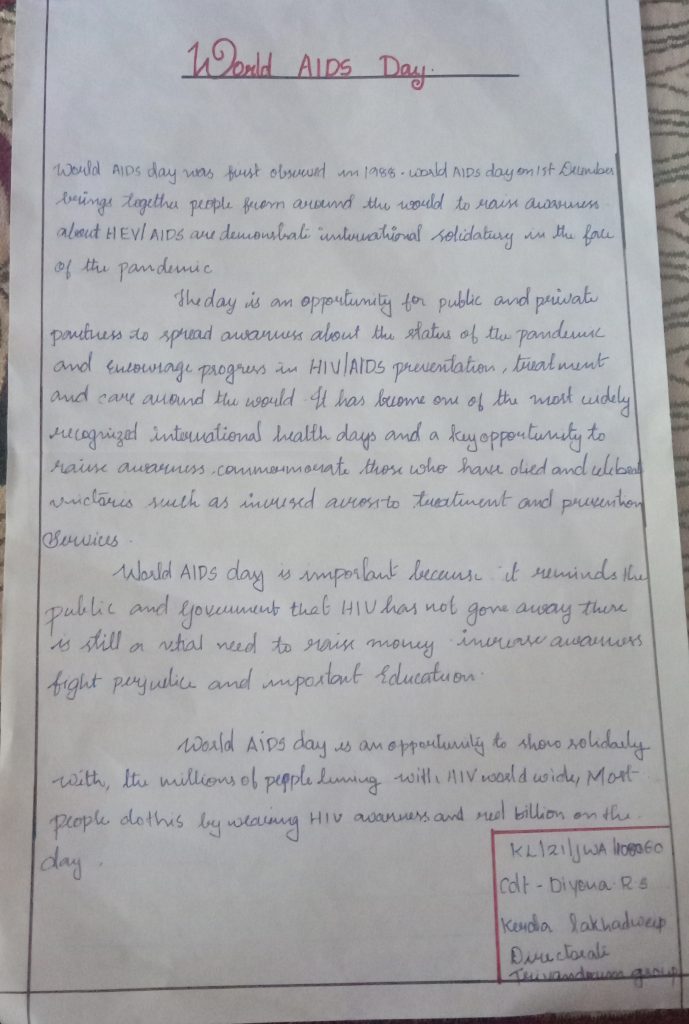 World AIDS Day.
World AIDS day was first observed in 1988. world AIDS day on 1st December
brings together people from around the world to raise awarness
about HEV/AIDS are demonstrati international solidatury in the face
of the pandemic
The day is an opportunity for public and private
partness to spread awarness about the status of the pandemic
and encourage progress in HIV/AIDS prevention, treatment
and care around the world. It has become one of the most widely
recognized international health days and a key opportunity to
raise awarness, commermorate those who have died and celebrat
victoris such as incresed access to treatment and prevention
Services.
World AIDS day is important because it reminds the
public and Government that HIV has not gone away there
is still a vital need to raise money increase awarness
fight perjudice and important Education.
World AiDS day is an opportunity to show solidarly
with, the millions of people living with HIV world wide, Most
people do this by wearing HIV awarness and red billion on the
day.
KL/21/JWA/108060
Cdt - Diyona R.S
Kerala lakhadweep
Directorate
Trivandrum group